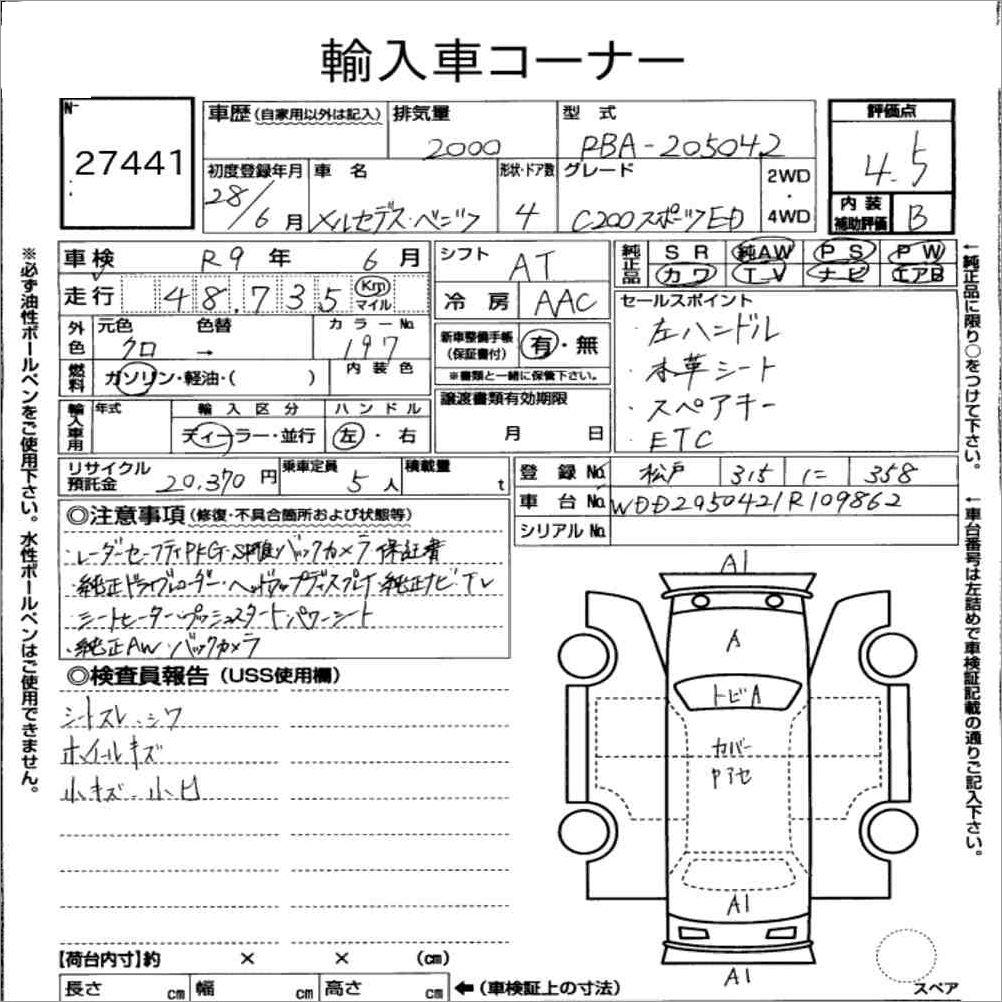 輸入車コーナー
№ 27441
車歴 (自家用以外は記入) 排気量 2000 型式 PBA-205042 評価点 4.5
初度登録年月 28/6月 車名 メルセデス・ベンツ 形状・ドア数 4 グレード C200 スポーツ ED 2WD・4WD 内装補助評価 B
車検 R9年 6月 シフト AT 純正品 SR 純AW PS PW
カワ TV ナビ エアB
走行 48.735 Km マイル 冷房 AAC
セールスポイント
・左ハンドル
・本革シート
・スペアキー
・ETC
外色 元色 クロ 色替 → カラーNo. 197
内装色
新車整備手帳(保証書付) 有・無
※書類と一緒に保管下さい。
燃料 ガソリン・軽油・( )
輸入車用 年式 輸入区分 ディーラー・並行 ハンドル 左・右
譲渡書類有効期限 月 日
リサイクル預託金 20.370円 乗車定員 5人 積載量 t
登録No. 松戸 315 に 358
車台No. WDD2050421R109862
シリアルNo.
◎注意事項 (修復・不具合箇所および状態等)
・レーダーセーフティPKG・バックカメラ 保証書
・純正ドライブレコーダー・ヘッドアップディスプレイ・純正ナビ・TV
・シートヒーター・プッシュスタート・パワーシート
・純正AW・バックカメラ
◎検査員報告 (USS使用欄)
シートスレ・シワ
ホイールキズ
小キズ・小凹
A1
A
トビA
カバー
A1
A1
スペア
【荷台内寸】約 × × (cm)
長さ cm 幅 cm 高さ cm ←(車検証上の寸法)
※必ず油性ボールペンをご使用下さい。水性ボールペンはご使用できません。
←純正品に限り○をつけて下さい。
←車台番号は左詰めで車検証記載の通りご記入下さい。